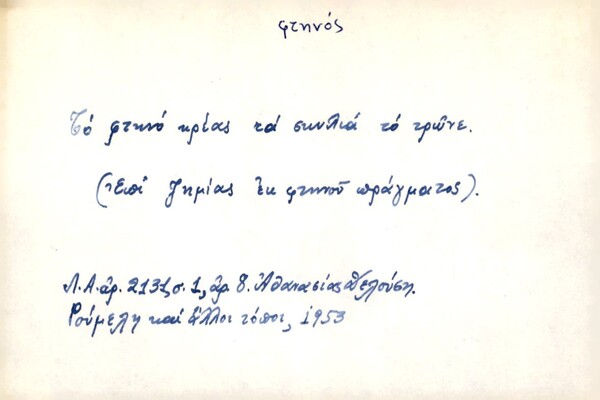 φτηνός
Τό φτηνό κρίας τά σκυλιά τό τρῶνε.
(Ἐπί ζημίας ἐκ φτηνοῦ πράγματος).
Λ.Α. ἀρ. 2131, σ. 1, ἀρ 8. Ἀθανασίας
Ρούμελη καί ἄλλοι τόποι, 1953